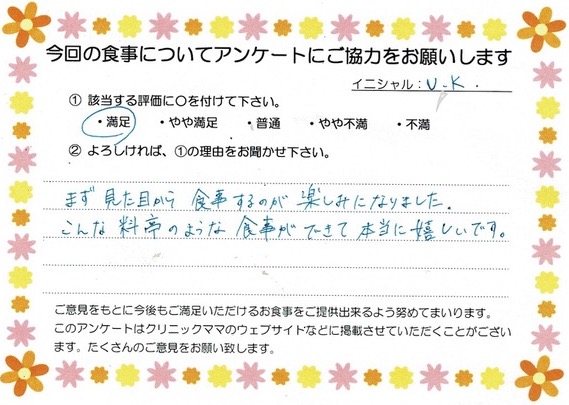 今回の食事についてアンケートにご協力をお願いします
イニシャル：U.K.
① 該当する評価に○を付けて下さい。
・満足 ・やや満足 ・普通 ・やや不満 ・不満
② よろしければ、①の理由をお聞かせ下さい。
まず見た目から食事するのが楽しみになりました。
こんな料亭のような食事ができて本当に嬉しいです。
ご意見をもとに今後もご満足いただけるお食事をご提供出来るよう努めてまいります。
このアンケートはクリニックママのウェブサイトなどに掲載させていただくことがござい
ます。たくさんのご意見をお願い致します。